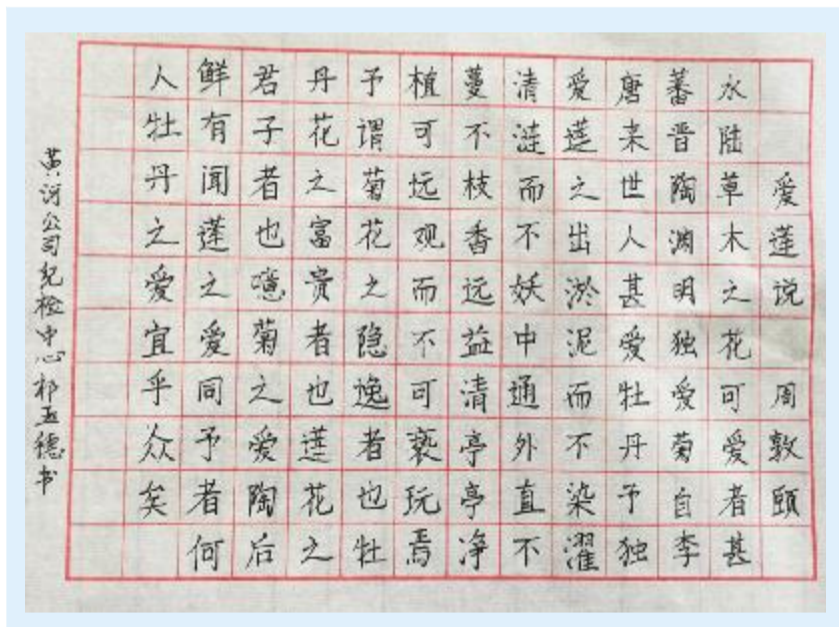 爱莲说 周敦颐
水陆草木之花可爱者甚
蕃晋陶渊明独爱菊自李
唐来世人甚爱牡丹予独
爱莲之出淤泥而不染濯
清涟而不妖中通外直不
蔓不枝香远益清亭亭净
植可远观而不可亵玩焉
予谓菊花之隐逸者也牡
丹花之富贵者也莲花之
君子者也噫菊之爱陶后
鲜有闻莲之爱同予者何
人牡丹之爱宜乎众矣
黄河公司纪检中心祁德书